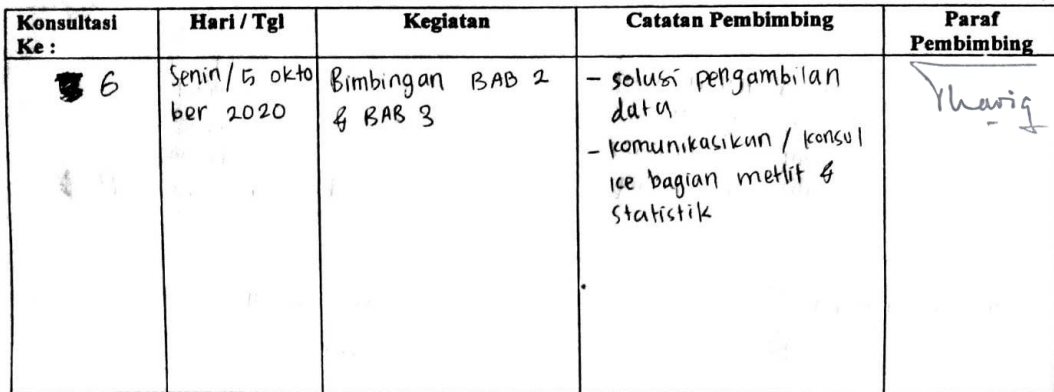 Konsultasi Ke :
Hari / Tgl
Kegiatan
Catatan Pembimbing
Paraf Pembimbing
6
Senin / 5 okto
ber 2020
Bimbingan BAB 2
& BAB 3
- solusi pengambilan
data
- komunikasikan / konsul
ke bagian metlit &
statistik